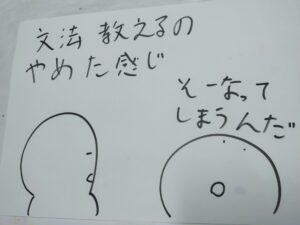 文法 教えるの
やめた感じ
そーなって
しまうんだ